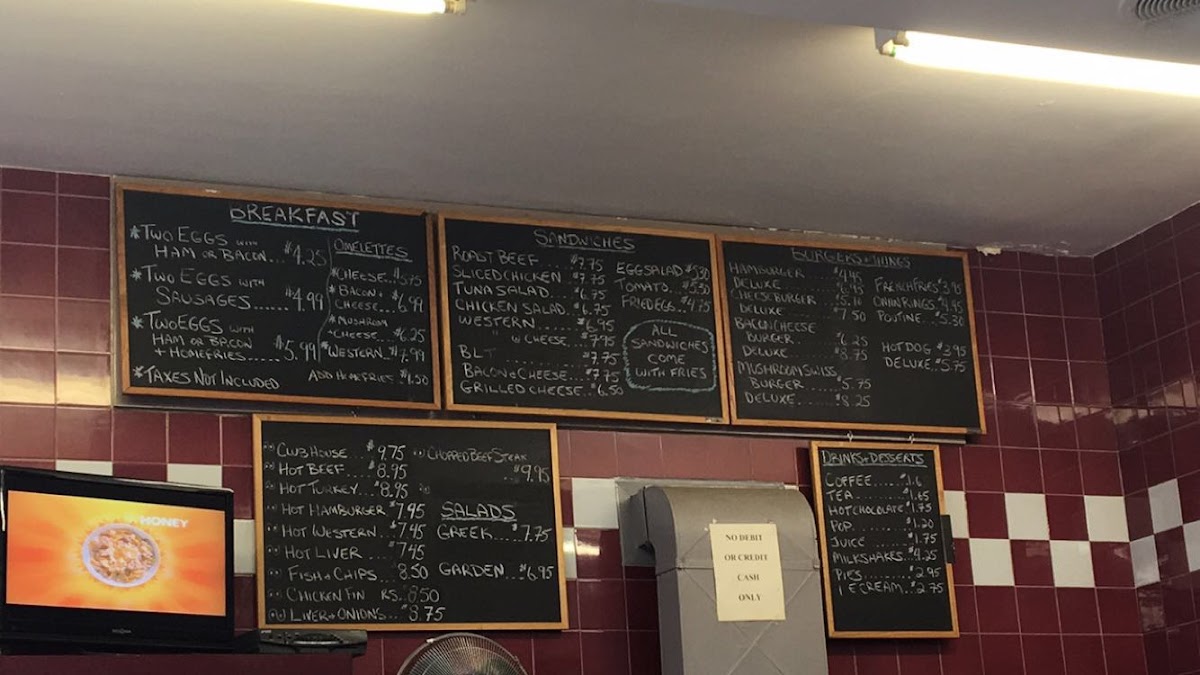 BREAKFAST
*TWO EGGS WITH
HAM OR BACON...$4.25
*TWO EGGS WITH
SAUSAGES......$4.99
*TWO EGGS WITH
HAM OR BACON
+ HOMEFRIES......$5.99
*TAXES NOT INCLUDED
OMELETTES
*CHEESE..$5.75
*BACON +
CHEESE...$6.99
*MUSHROOM
+ CHEESE...$6.25
*WESTERN..$7.99
ADD HOMEFRIES $1.50
SANDWICHES
ROAST BEEF...$7.75
SLICED CHICKEN $7.75
TUNA SALAD....$6.75
CHICKEN SALAD.$6.75
WESTERN......$6.95
" W CHEESE...$7.95
BLT........$7.75
BACON & CHEESE...$7.75
GRILLED CHEESE...$6.50
EGG SALAD
TOMATO..$5.50
FRIED EGG.$4.75
ALL
SANDWICHES
COME
WITH FRIES
BURGERS + THINGS
HAMBURGER....$4.45
DELUXE
CHEESEBURGER $5.10
DELUXE......$7.50
BACON CHEESE
BURGER......$6.25
DELUXE......$8.75
MUSHROOM SWISS
BURGER....$5.75
DELUXE........$8.25
FRENCH FRIES $3.95
ONION RINGS $4.95
POUTINE...$5.30
HOT DOG $3.95
DELUXE..$5.75
CLUBHOUSE...$9.75
HOT BEEF....$8.95
HOT TURKEY...$8.95
HOT HAMBURGER $7.95
HOT WESTERN..$7.45
HOT LIVER...$7.45
FISH & CHIPS..8.50
CHICKEN FIN RS.8.50
LIVER & ONIONS..$8.75
CHOPPED BEEF STEAK
$9.95
SALADS
GREEK...$7.75
GARDEN...$6.95
NO DEBIT
OR CREDIT
CASH
ONLY
DRINKS + DESSERTS
COFFEE......$1.6
TEA........$1.65
HOT CHOCOLATE $1.75
POP........$1.20
JUICE......$1.75
MILKSHAKES.$4.25
PIES........$2.95
I E CREAM...$2.75
HONEY